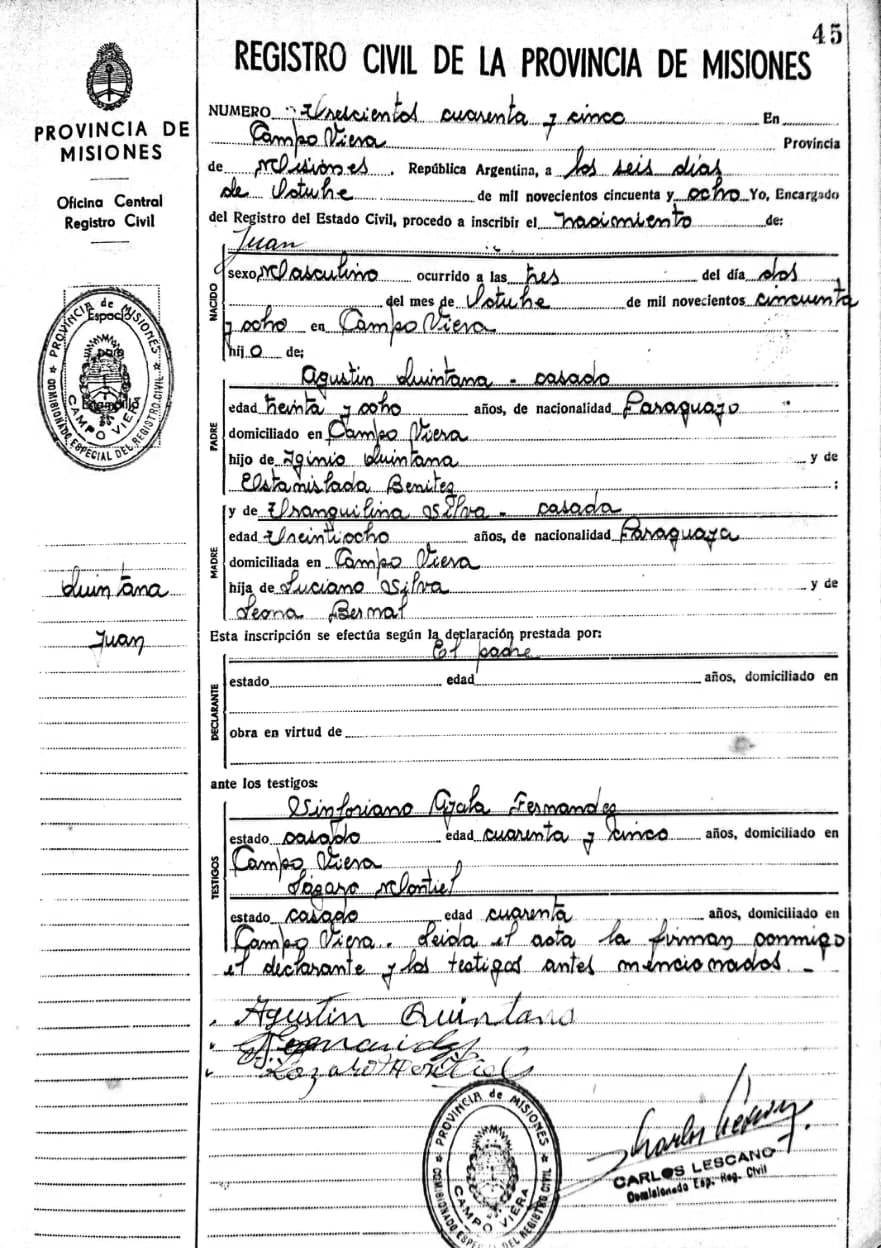 45
REGISTRO CIVIL DE LA PROVINCIA DE MISIONES
PROVINCIA DE
MISIONES
Oficina Central
Registro Civil
PROVINCIA de MISIONES
Espacio
para
Estampilla
CAMPO VIERA
COMISIONADO ESPECIAL DEL REGISTRO CIVIL
Quintana
Juan
NUMERO Trescientos cuarenta y cinco En
Campo Viera Provincia
de Misiones. República Argentina, a los seis días
de Octubre de mil novecientos cincuenta y ocho Yo, Encargado
del Registro del Estado Civil, procedo a inscribir el nacimiento de:
Juan
NACIDO
sexo Masculino ocurrido a las tres del día dos
del mes de Octubre de mil novecientos cincuenta
y ocho en Campo Viera
hijo de;
PADRE
Agustin Quintana - casado
edad treinta y ocho años, de nacionalidad Paraguayo
domiciliado en Campo Viera
hijo de Iginio Quintana y de
Estanislada Benitez ;
MADRE
y de Tranquilina Silva - casada
edad Treintiocho años, de nacionalidad Paraguaya
domiciliada en Campo Viera
hija de Luciano Silva y de
Leona Bernal
Esta inscripción se efectúa según la declaración prestada por:
El padre
DECLARANTE
estado edad años, domiciliado en
obra en virtud de
ante los testigos:
TESTIGOS
Sinforiano Ayala Fernandez
estado casado edad cuarenta y cinco años, domiciliado en
Campo Viera
Lázaro Montiel
estado casado edad cuarenta años, domiciliado en
Campo Viera. Leida el acta la firman conmigo
el declarante y los testigos antes mencionados -
Agustin Quintana
Fernandez
Lazaro Montiel
PROVINCIA de MISIONES
CAMPO VIERA
COMISIONADO ESPECIAL DEL REGISTRO CIVIL
CARLOS LESCANO
Comisionado Esp. Reg. Civil